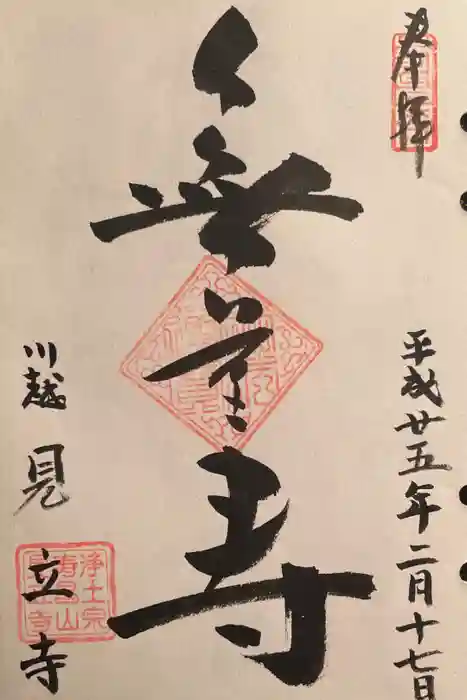 奉拝
平成廿五年二月十七日
無量寿
川越 見立寺
浄土宗
寿昌山
見立寺